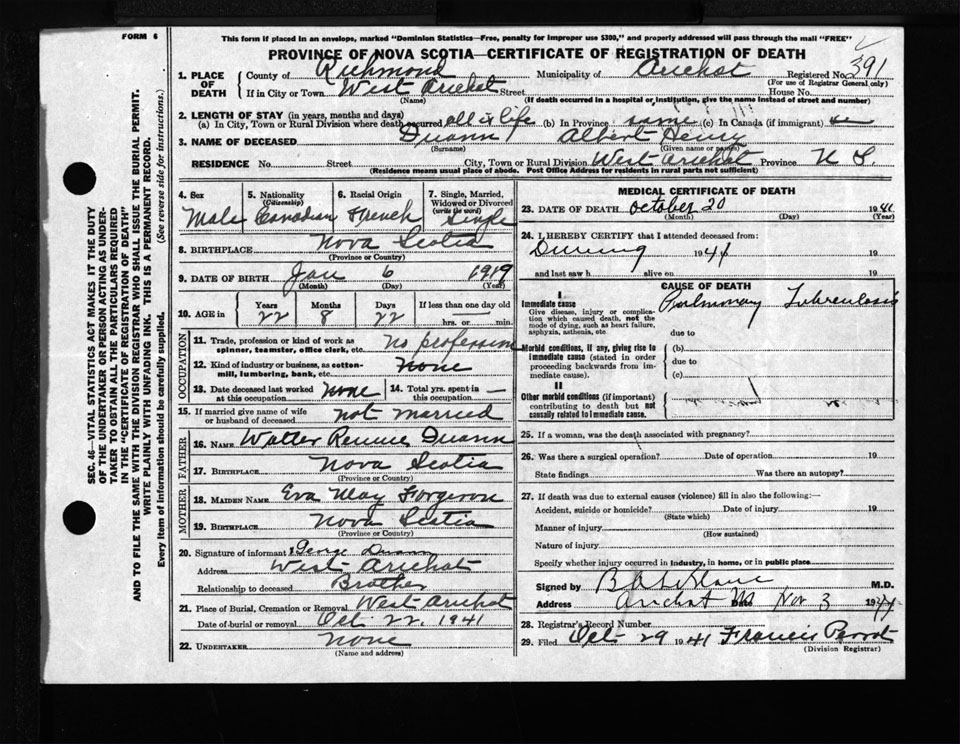 FORM 6
This form if placed in an envelope, marked "Dominion Statistics—Free, penalty for improper use $300," and properly addressed will pass through the mail "FREE"
PROVINCE OF NOVA SCOTIA—CERTIFICATE OF REGISTRATION OF DEATH
SEC. 46—VITAL STATISTICS ACT MAKES IT THE DUTY
OF THE UNDERTAKER OR PERSON ACTING AS UNDER-
TAKER TO OBTAIN ALL THE PARTICULARS REQUIRED
IN THE "CERTIFICATE OF REGISTRATION OF DEATH"
AND TO FILE THE SAME WITH THE DIVISION REGISTRAR WHO SHALL ISSUE THE BURIAL PERMIT.
WRITE PLAINLY WITH UNFADING INK. THIS IS A PERMANENT RECORD.
Every item of information should be carefully supplied. (See reverse side for instructions.)
1. PLACE OF DEATH
County of Richmond Municipality of Arichat Registered No. 391
(For use of Registrar General only)
If in City or Town West Arichat Street House No.
(Name) (If death occurred in a hospital or institution, give the name instead of street and number)
2. LENGTH OF STAY (in years, months and days)
(a) In City, Town or Rural Division where death occurred all life (b) In Province same (c) In Canada (if immigrant)
3. NAME OF DECEASED Duann Albert Henry
(Surname) (Given name or names)
RESIDENCE No. Street City, Town or Rural Division West Arichat Province N S.
(Residence means usual place of abode. Post Office Address for residents in rural parts not sufficient)
4. Sex Male
5. Nationality (Citizenship) Canadian
6. Racial Origin French
7. Single, Married, Widowed or Divorced (write the word) Single
8. BIRTHPLACE Nova Scotia
(Province or Country)
9. DATE OF BIRTH Jan 6 1919
(Month) (Day) (Year)
10. AGE in Years 22 Months 8 Days 22 If less than one day old
hrs. or min.
OCCUPATION
11. Trade, profession or kind of work as spinner, teamster, office clerk, etc. no profession
12. Kind of industry or business, as cotton-mill, lumbering, bank, etc. None
13. Date deceased last worked at this occupation None
14. Total yrs. spent in this occupation —
15. If married give name of wife or husband of deceased not married
FATHER
16. NAME Walter Rennie Duann
17. BIRTHPLACE Nova Scotia
(Province or Country)
MOTHER
18. MAIDEN NAME Eva May Forgeron
19. BIRTHPLACE Nova Scotia
(Province or Country)
20. Signature of informant George Duann
Address West Arichat
Relationship to deceased Brother
21. Place of Burial, Cremation or Removal West Arichat
Date of burial or removal Oct. 22. 1941
22. UNDERTAKER None
(Name and address)
MEDICAL CERTIFICATE OF DEATH
23. DATE OF DEATH October 20 1941
(Month) (Day) (Year)
24. I HEREBY CERTIFY that I attended deceased from:
During 1941 19
and last saw h alive on 19
CAUSE OF DEATH
I
Immediate cause Pulmonary Tuberculosis
Give disease, injury or complication which caused death, not the mode of dying, such as heart failure, asphyxia, asthenia, etc.
due to
Morbid conditions, if any, giving rise to immediate cause (stated in order proceeding backwards from immediate cause).
(b)
due to
(c)
II
Other morbid conditions (if important) contributing to death but not causally related to immediate cause.
25. If a woman, was the death associated with pregnancy?
26. Was there a surgical operation? Date of operation 19
State findings Was there an autopsy?
27. If death was due to external causes (violence) fill in also the following:—
Accident, suicide or homicide? Date of injury 19
(State which)
Manner of injury
(How sustained)
Nature of injury
Specify whether injury occurred in industry, in home, or in public place
Signed by B A LeBlanc M.D.
Address Arichat Date Nov 3 19
28. Registrar's Record Number
29. Filed Oct 29 1941 Francis
(Division Registrar)